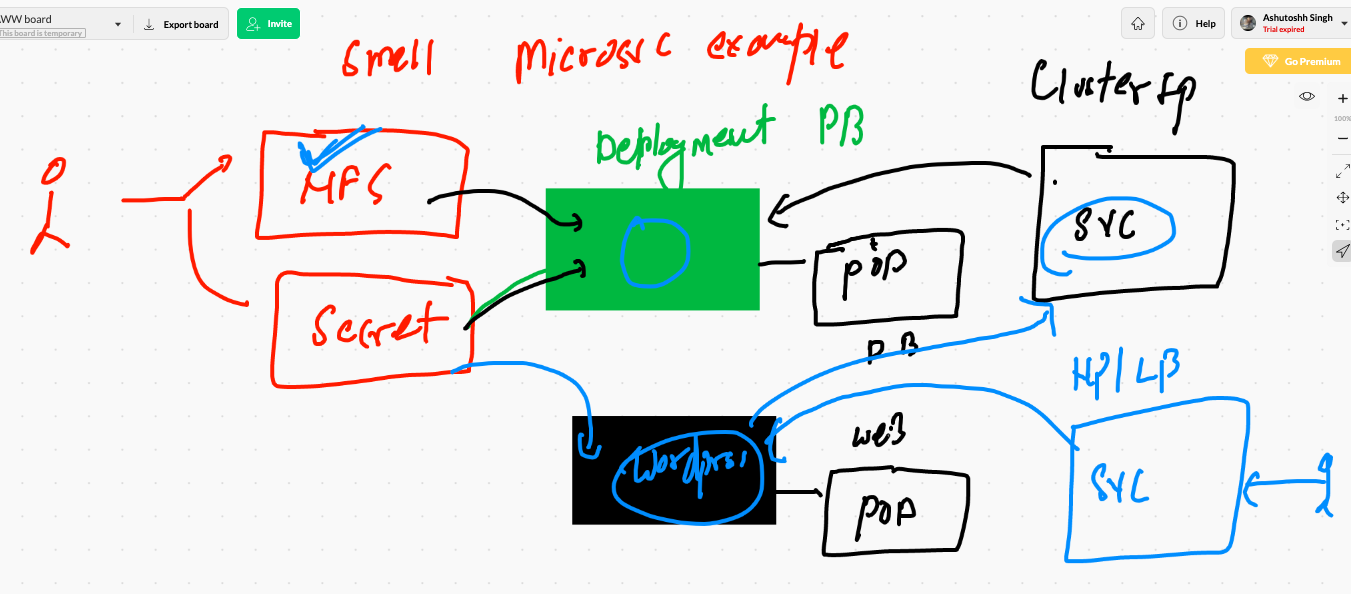 AWW board
This board is temporary
Export board
Invite
Help
Ashutoshh Singh
Trial expired
Go Premium
100%
Small Microsvc example
Deployment DB
ClusterIp
MFS
SVC
POD
Secret
DB
NP/LB
web
Wordpress
SVC
POD